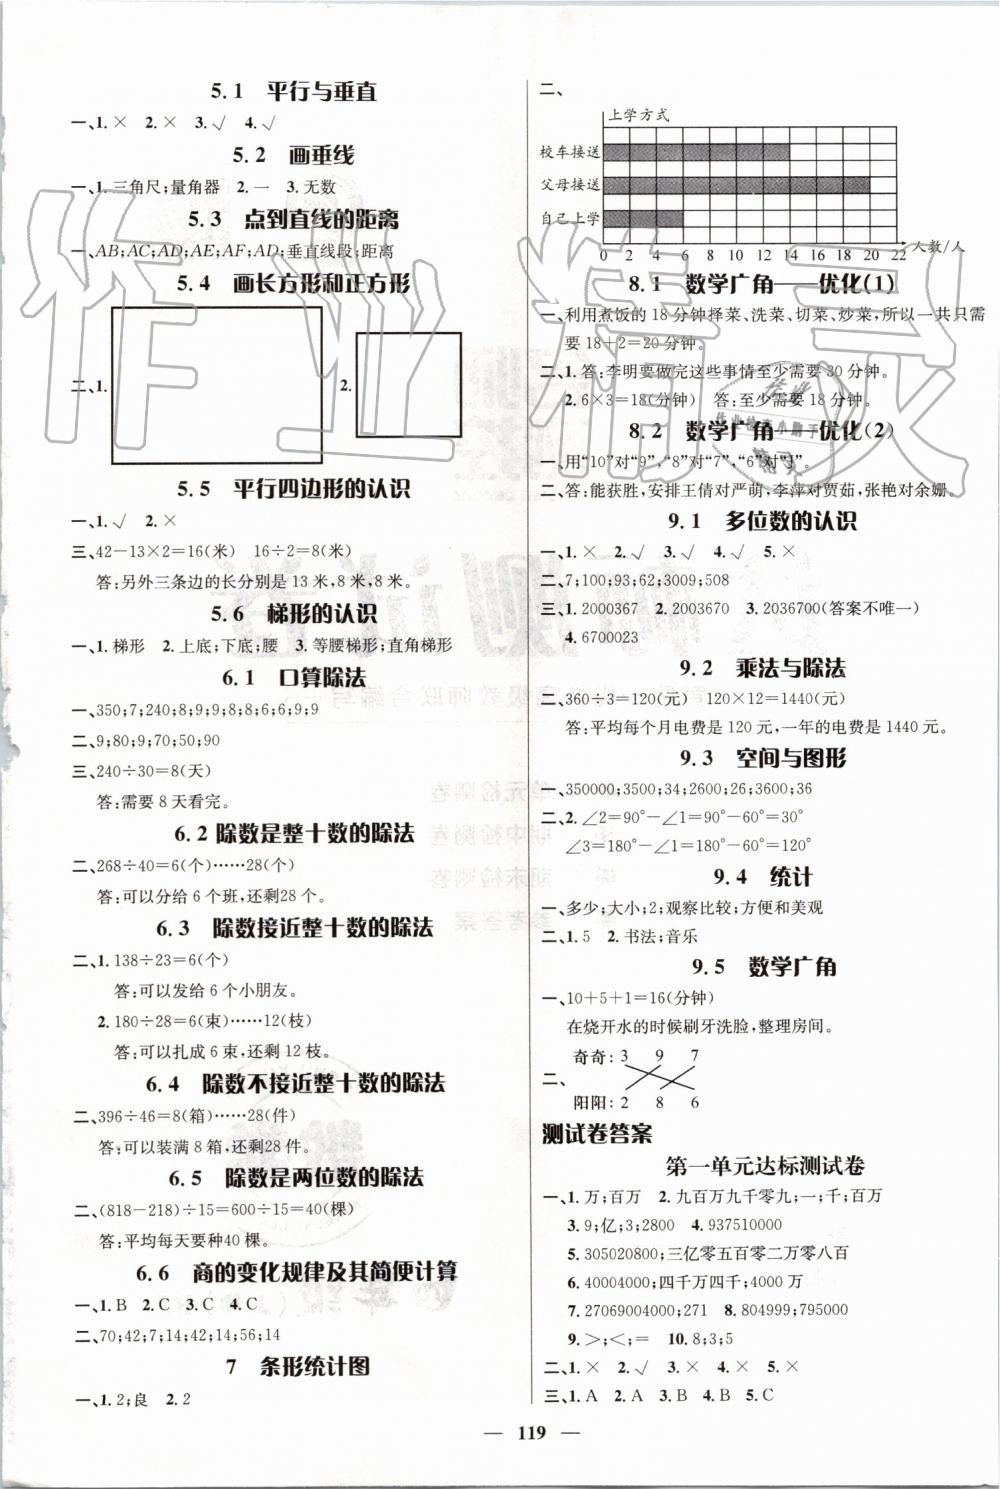 5.1 平行与垂直
一、1.× 2.× 3.√ 4.√
5.2 画垂线
一、1.三角尺;量角器 2.一 3.无数
5.3 点到直线的距离
一、AB;AC;AD;AE;AF;AD;垂直线段;距离
5.4 画长方形和正方形
二、1.
2.
5.5 平行四边形的认识
一、1.√ 2.×
三、42-13×2=16(米) 16÷2=8(米)
答:另外三条边的长分别是 13 米,8 米,8 米。
5.6 梯形的认识
一、1.梯形 2.上底;下底;腰 3.等腰梯形;直角梯形
6.1 口算除法
一、350;7;240;8;9;9;8;8;6;6;9;9
二、9;80;9;70;50;90
三、240÷30=8(天)
答:需要 8 天看完。
6.2 除数是整十数的除法
二、268÷40=6(个)……28(个)
答:可以分给 6 个班,还剩28 个。
6.3 除数接近整十数的除法
二、1.138÷23=6(个)
答:可以发给 6 个小朋友。
2.180÷28=6(束)……12(枝)
答:可以扎成 6 束,还剩 12 枝。
6.4 除数不接近整十数的除法
二、396÷46=8(箱)……28(件)
答:可以装满 8 箱,还剩28 件。
6.5 除数是两位数的除法
二、(818-218)÷15=600÷15=40(棵)
答:平均每天要种40 棵。
6.6 商的变化规律及其简便计算
一、1.B 2.C 3.C 4.C
二、70;42;7;14;42;14;56;14
7 条形统计图
一、1.2;良 2.2
二、
上学方式
校车接送
父母接送
自己上学
0 2 4 6 8 10 12 14 16 18 20 22 人数/人
8.1 数学广角——优化(1)
一、利用煮饭的 18 分钟择菜、洗菜、切菜、炒菜,所以一共只需
要 18+2=20(分钟)。
二、1.答:李明要做完这些事情至少需要 30 分钟。
2.6×3=18(分钟) 答:至少需要 18 分钟。
8.2 数学广角——优化(2)
一、用“10”对“9”,“8”对“7”,“6”对“J”。
二、答:能获胜,安排王倩对严萌,李萍对贾茹,张艳对余姗。
9.1 多位数的认识
一、1.× 2.√ 3.√ 4.√ 5.×
二、7;100;93;62;8010;3009;508
三、1.2000367 2.2003670 3.2036700(答案不唯一)
4.6700023
9.2 乘法与除法
二、360÷3=120(元) 120×12=1440(元)
答:平均每个月电费是 120 元,一年的电费是 1440 元。
9.3 空间与图形
一、350000;3500;34;2600;26;3600;36
二、2.∠2=90°-∠1=90°-60°=30°
∠3=180°-∠1=180°-60°=120°
9.4 统计
一、多少;大小;2;观察比较;方便和美观
二、1.5 2.书法;音乐
9.5 数学广角
一、10+5+1=16(分钟)
在烧开水的时候刷牙洗脸,整理房间。
奇奇:3 9 7
二、
阳阳:2 8 6
测试卷答案
第一单元达标测试卷
一、1.万;百万 2.九百万九千零九;一;千;百万
3.9;亿;3;2800 4.937510000
5.305020800;三亿零五百零二万零八百
6.40004000;四千万四千;4000 万
7.27069004000;271 8.804999;795000
9.>;<;= 10.8;3;5
二、1.× 2.√ 3.× 4.× 5.×
三、1.A 2.A 3.B 4.B 5.C
— 119 —
作业精灵